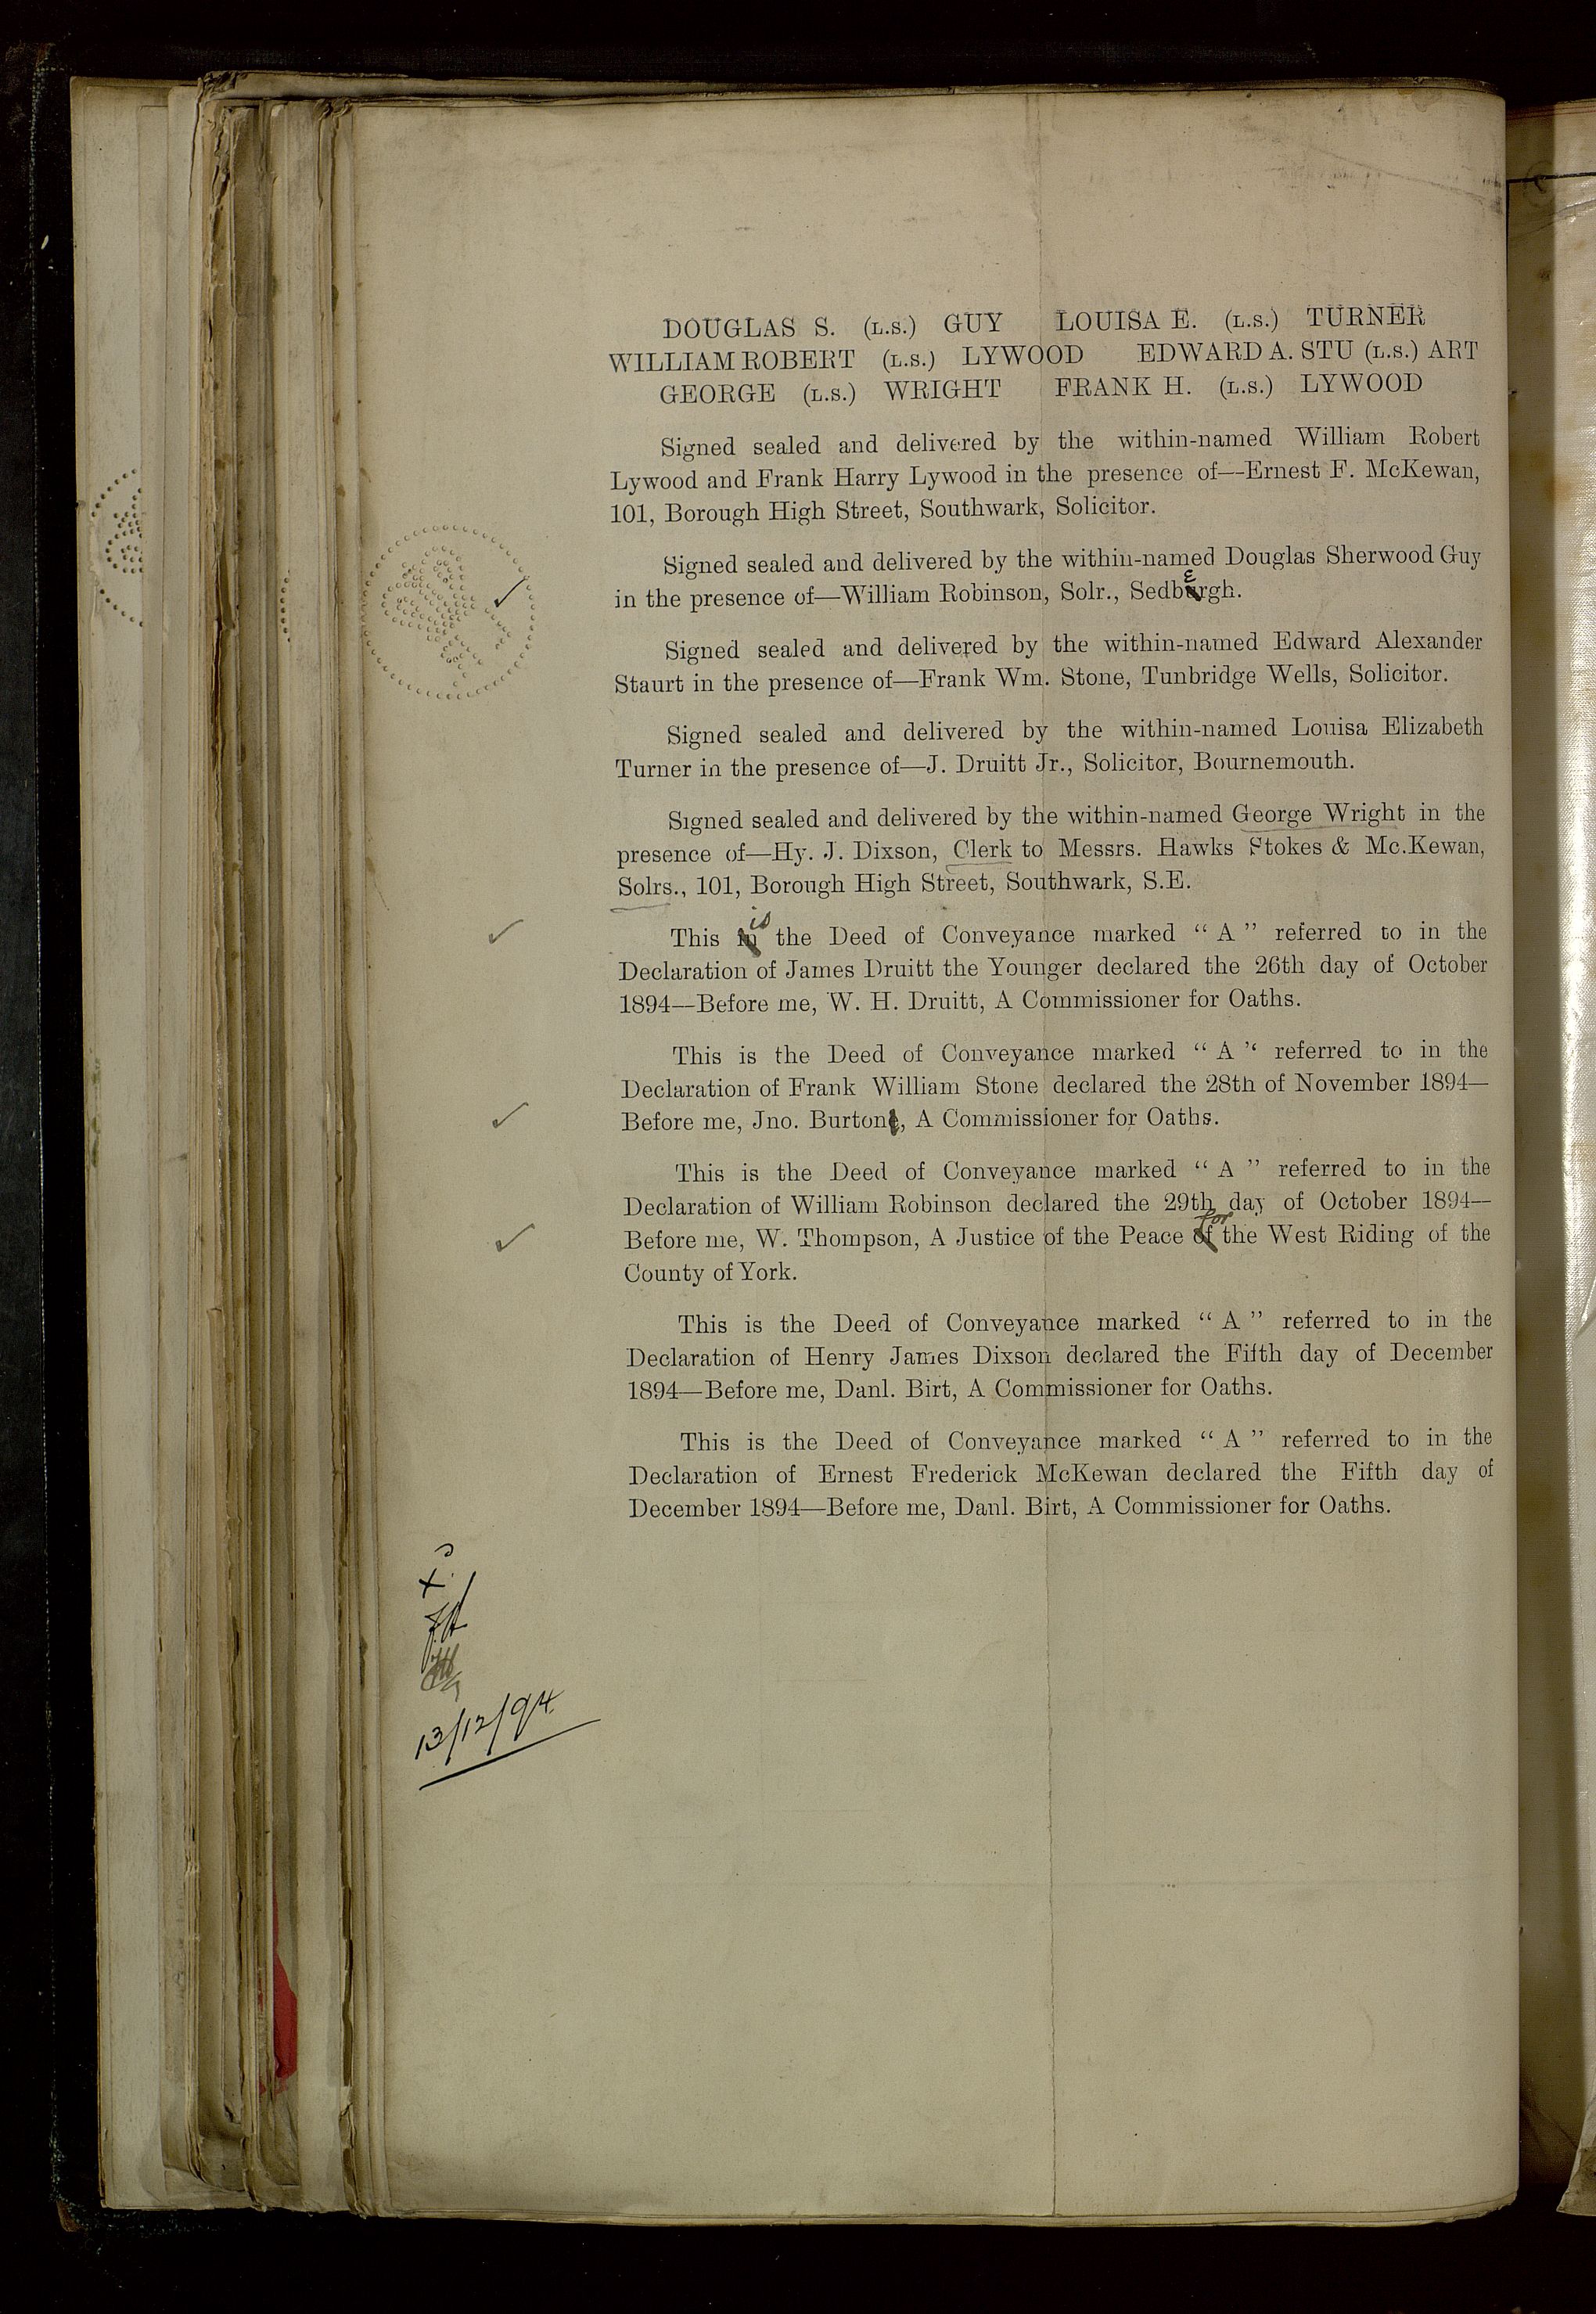 DOUGLAS S. (L.S.) GUY LOUISA E. (L.S.) TURNER
WILLIAM ROBERT (L.S.) LYWOOD EDWARD A. STU (L.S.) ART
GEORGE (L.S.) WRIGHT FRANK H. (L.S.) LYWOOD
Signed sealed and delivered by the within-named William Robert
Lywood and Frank Harry Lywood in the presence of—Ernest F. McKewan,
101, Borough High Street, Southwark, Solicitor.
Signed sealed and delivered by the within-named Douglas Sherwood Guy
in the presence of—William Robinson, Solr., Sedbergh.
Signed sealed and delivered by the within-named Edward Alexander
Staurt in the presence of—Frank Wm. Stone, Tunbridge Wells, Solicitor.
Signed sealed and delivered by the within-named Louisa Elizabeth
Turner in the presence of—J. Druitt Jr., Solicitor, Bournemouth.
Signed sealed and delivered by the within-named George Wright in the
presence of—Hy. J. Dixson, Clerk to Messrs. Hawks Stokes & Mc.Kewan,
Solrs., 101, Borough High Street, Southwark, S.E.
This is the Deed of Conveyance marked “ A ” referred to in the
Declaration of James Druitt the Younger declared the 26th day of October
1894—Before me, W. H. Druitt, A Commissioner for Oaths.
This is the Deed of Conveyance marked “ A “ referred to in the
Declaration of Frank William Stone declared the 28th of November 1894—
Before me, Jno. Burton, A Commissioner for Oaths.
This is the Deed of Conveyance marked “ A ” referred to in the
Declaration of William Robinson declared the 29th day of October 1894—
Before me, W. Thompson, A Justice of the Peace for the West Riding of the
County of York.
This is the Deed of Conveyance marked “ A ” referred to in the
Declaration of Henry James Dixson declared the Fifth day of December
1894—Before me, Danl. Birt, A Commissioner for Oaths.
This is the Deed of Conveyance marked “ A ” referred to in the
Declaration of Ernest Frederick McKewan declared the Fifth day of
December 1894—Before me, Danl. Birt, A Commissioner for Oaths.
13/12/94